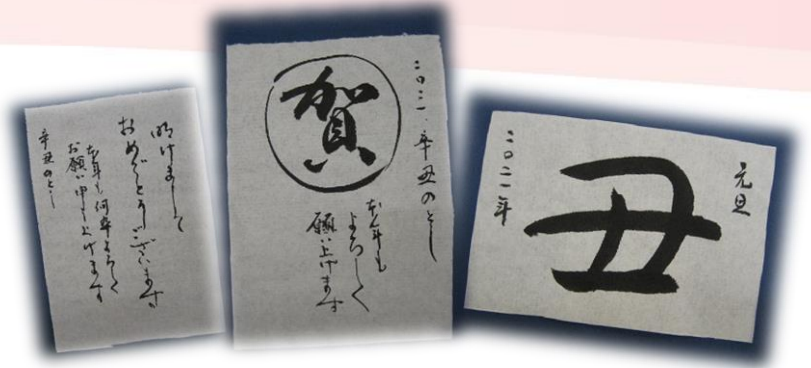 明けまして
おめでとうございます
本年も何卒よろしく
お願い申し上げます
辛丑のとし
二〇二一、辛丑のとし
賀
本年も
よろしく
願い上げます
元旦
丑
二〇二一年